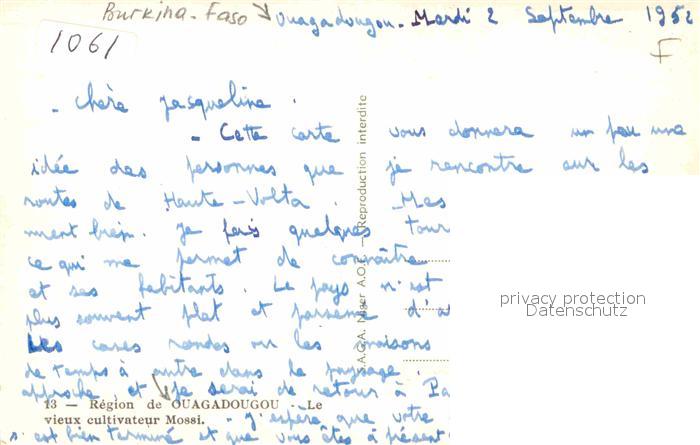 Burkina-Faso
Ouagadougou. Mardi 2 Septembre 1952
1061
F
- Chère Jacqueline.
- Cette carte vous donnera un peu une
idée des personnes que je rencontre sur les
routes de Haute-Volta. Mes
ment bien. Je fais quelques tour
ce qui me permet de connaître
et ses habitants. Le pays n'est
plus souvent plat et parsemé d'a
Les cases rondes ou les maisons
de temps à autre dans le paysage.
approche, et je serai de retour à Pa
13 — Région de OUAGADOUGOU - Le
vieux cultivateur Mossi.
- J'espère que votre
s'est bien terminé et que vous êtes à présent
S.A.C.A. Niger A.O.F. — Reproduction interdite
privacy protection
Datenschutz